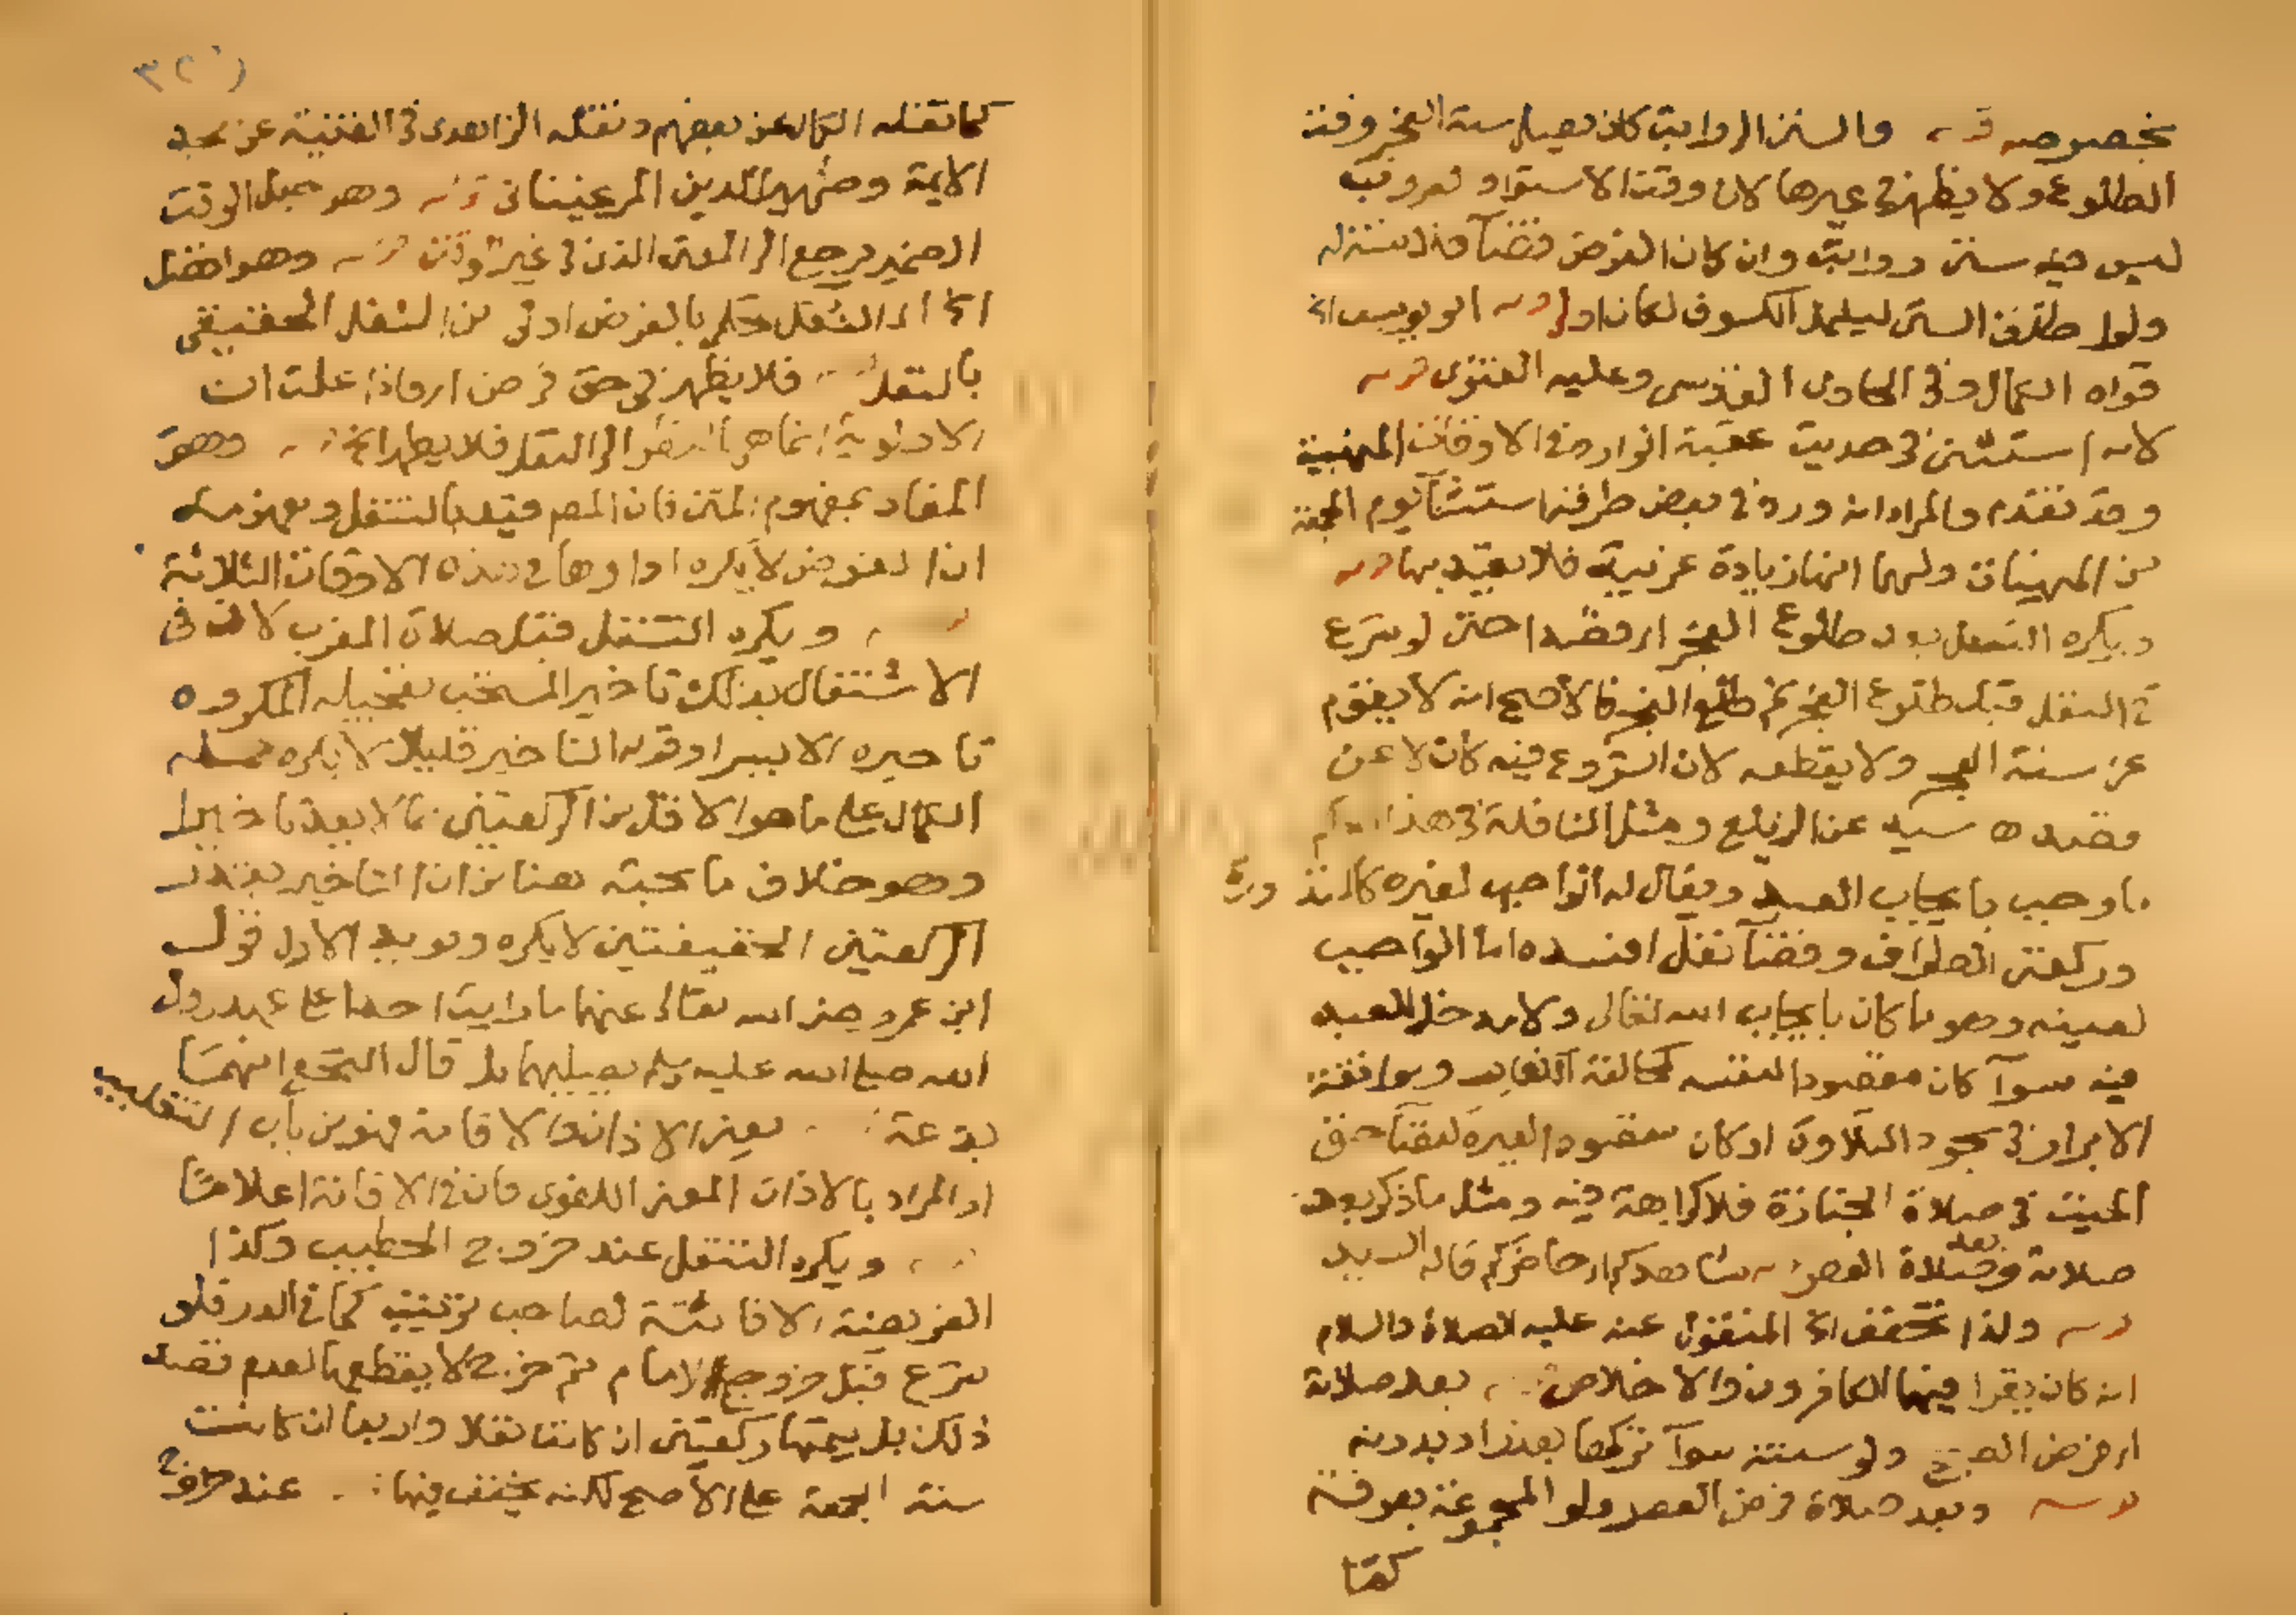 بخصوصه قوله والسنن الرواتب كان يصلى سنة الفجر وقت
الطلوع ولا يظهر فى غيرها لان وقت الاستواء والغروب
ليس فيه سنن رواتب وان كان الفرض قضآ
ولو اطلق السنن ليشمل الكسوف لكان اولى ابو يوسف الخ
قواه الكمال وفى الحاوى القدسى وعليه الفتوى قوله
لانه استثنى فى حديث عقبة الوارد فى الاوقات المنهية
وقد تقدم والمراد انه ورد فى بعض طرقه استثنآ يوم الجمعة
من المهيات ولهما انها زيادة غريبة فلا يعتد بها قوله
ويكره التنفل بعد طلوع الفجر اى قصدا حتى لو شرع
فى النفل قبل طلوع الفجر ثم طلع الفجر فالاصح انه لا يقوم
عن سنة الفجر ولا يقطعه لان الشروع فيه كان لا عن
قصد ه سيد عن الزيلعى ومثل النافلة فى هذا
ما وجب بايجاب العبد ويقال له الواجب لغيره كالمنذور
وركعتى الطواف وقضآ نفل افسده اما الواجب
لعينه وهو ما كان بايجاب الله تعالى ولا مدخل للعبد
فيه سوآ كان مقصودا لنفسه كمخالفة الكفار وموافقة
الابرار فى سجود التلاوة او كان مقصود الغيره كقضآ حق
الميت فى صلاة الجنازة فلا كراهة فيه ومثل ما ذكر بعد
صلاته وبعد صلاة العصر قاله السيد
قوله ولذا تخفف الخ المنقول عنه عليه الصلاة والسلام
انه كان يقرا فيها الكافرون والاخلاص بعد صلاته
اى فرض الصبح ولو سنته سوآ تركها بعذر او بدونه
قوله وبعد صلاة فرض العصر ولو المجموعة بعرفة
كما
٣٢٠
كما نقله الكمال عن بعضهم ونقله الزاهدى فى القنية عن مجد
الايمة وظهير الدين المرغينانى قوله وهو جعل الوقت
الضمير يرجع الى المعنى الذى فى غير الوقت قوله وهو افضل
الخ اى النفل حكم بالفرض اولى من النفل الحقيقى
بالنفل فلا يظهر فى حق فرض اى فاذا علمت ان
الاولوية انما هى بالنظر الى النفل فلا يظهر الخ وهو
المفاد بمفهوم المتن فان المص قيد بالتنفل ومفهومه
ان الفرض لا يكره اداوها فى هذه الاوقات الثلاثة
قوله ويكره التنفل قبل صلاة المغرب لان فى
الاشتغال بذلك تاخير المستحب تعجيله المكروه
تاخيره الا يسيرا وقوله التاخير قليلا لا يكره حمله
الكمال على ما هو الاقل من الركعتين مما لا يعد تاخيرا
وهو خلاف ما بحثه هنا من ان التاخير بقدر
الركعتين الخفيفتين لا يكره ويويد الاول قول
ابن عمر رضى الله تعالى عنهما ما رايت احدا على عهد رسول
الله صلى الله عليه وسلم يصليهما بل قال النخعى انهما
بدعة يعنى الاذان والاقامة فهو من باب التغليب
او المراد بالاذان المعنى اللغوى فان فى الاقامة اعلاما
ويكره التنفل عند خروج الخطيب وكذا
الفريضة الا فائتة لصاحب ترتيب كما فى الدر فلو
شرع قبل خروج الامام ثم خرج لا يقطعها لعدم قصد
ذلك بل يتمها ركعتين ان كانت نفلا واربعا ان كانت
سنة الجمعة على الاصح لكنه يخفف فيها عند خروج